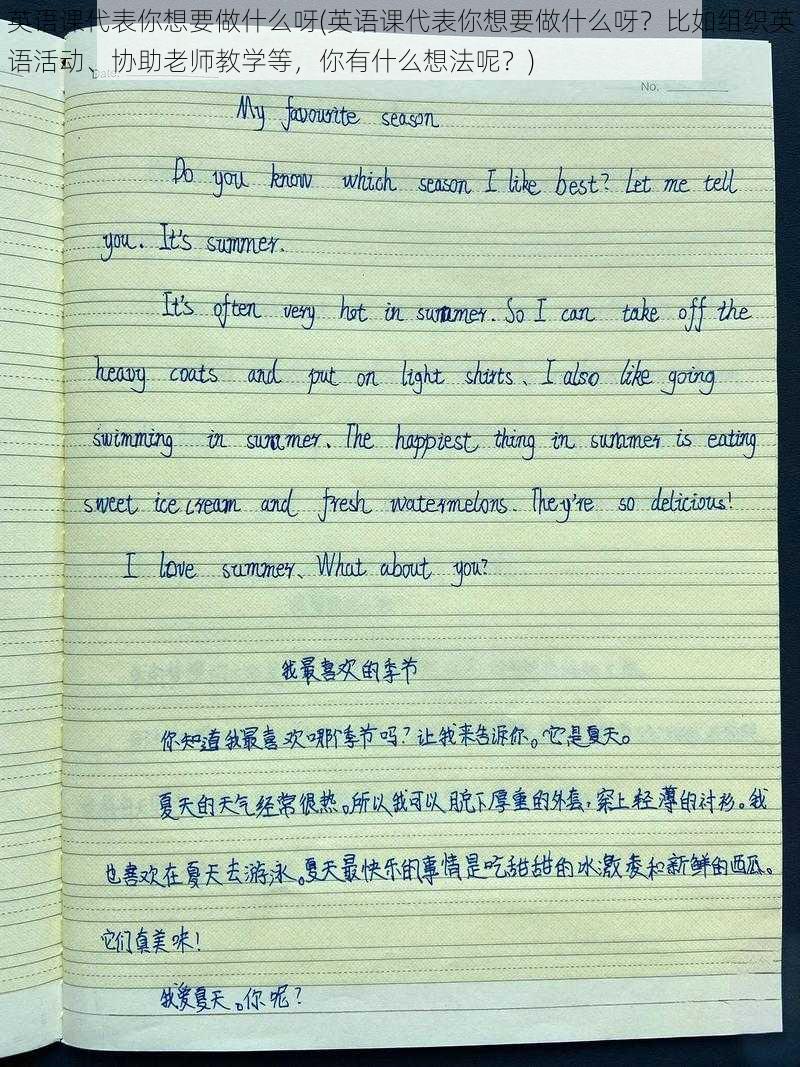 英语课代表你想要做什么呀(英语课代表你想要做什么呀？比如组织英
语活动、协助老师教学等，你有什么想法呢？)
No.
My favourite season
Do you know which season I like best? Let me tell
you. It's summer.
It's often very hot in summer. So I can take off the
heavy coats and put on light shirts. I also like going
swimming in summer. The happiest thing in summer is eating
sweet ice cream and fresh watermelons. They're so delicious!
I love summer. What about you?
我最喜欢的季节
你知道我最喜欢哪个季节吗？让我来告诉你。它是夏天。
夏天的天气经常很热。所以我可以脱下厚重的外套，穿上轻薄的衬衫。我
也喜欢在夏天去游泳。夏天最快乐的事情是吃甜甜的冰激凌和新鲜的西瓜。
它们真美味！
我爱夏天。你呢？